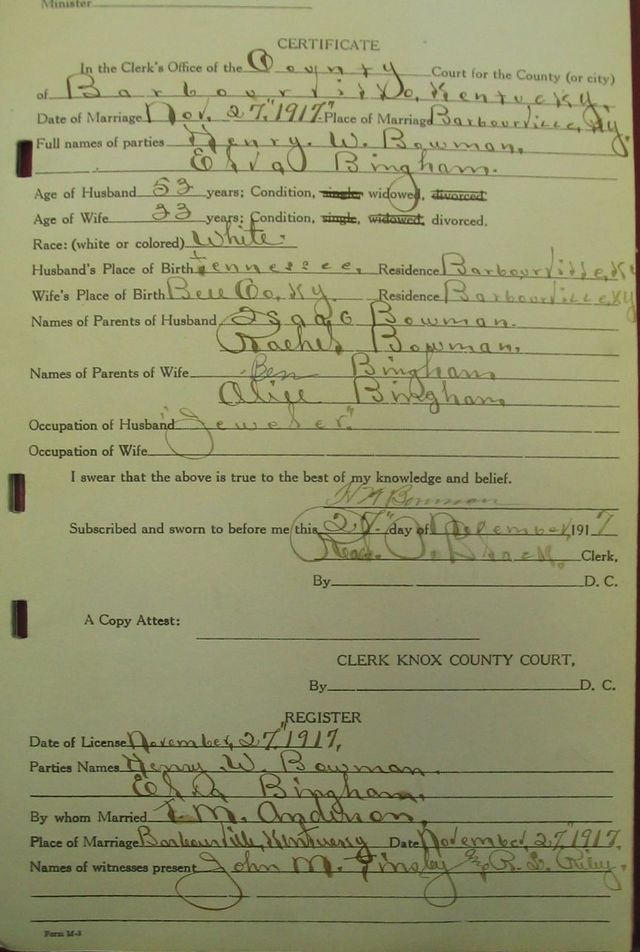 Minister
CERTIFICATE
In the Clerk's Office of the County Court for the County (or city)
of Barbourville, Kentucky,
Date of Marriage Nov. 27," 1917." Place of Marriage Barbourville, Ky.
Full names of parties Henry. W. Bowman,
Bingham.
Age of Husband 53 years; Condition, single, widowed, divorced
Age of Wife 33 years; Condition, single, widowed, divorced.
Race: (white or colored) White.
Husband's Place of Birth Tennessee, Residence Barbourville, Ky
Wife's Place of Birth Bell Co, Ky. Residence Barbourville Ky
Names of Parents of Husband Isaac Bowman.
Rachel Bowman.
Names of Parents of Wife Ben Bingham
Alice Bingham,
Occupation of Husband "Jeweler."
Occupation of Wife
I swear that the above is true to the best of my knowledge and belief.
Bowman
Subscribed and sworn to before me this 27" day of November, 1917
Read Black. Clerk,
By D. C.
A Copy Attest:
CLERK KNOX COUNTY COURT,
By D. C.
REGISTER
Date of License November, 27," 1917,
Parties Names Henry W. Bowman,
Bingham,
By whom Married M. Anderson,
Place of Marriage Barbourville, Kentucky Date November, 27," 1917,
Names of witnesses present John M. Tinsley Riley,
Form M-3